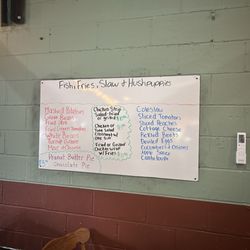 Fish, Fries, Slaw & Hushpuppies
Mashed Potatoes
Green Beans
Fried Okra
Fried Green Tomatoes
White Beans
Turnip Greens
Mac & Cheese
Peanut Butter Pie
Chocolate Pie
Chicken Strip
Salad-Fried
or grilled
Chicken or
Tuna Salad
one side
Fried or Grilled
Chicken Wrap
w/Fries
Coleslaw
Sliced Tomatoes
Sliced Peaches
Cottage Cheese
Pickled Beets
Deviled Eggs
Cucumber & Onions
Apple Sauce
Cantaloupe